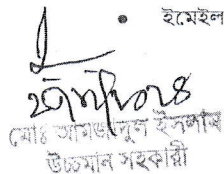 • ইমেইল
মোঃ আমজাদুল ইসলাম
উচ্চমান সহকারী